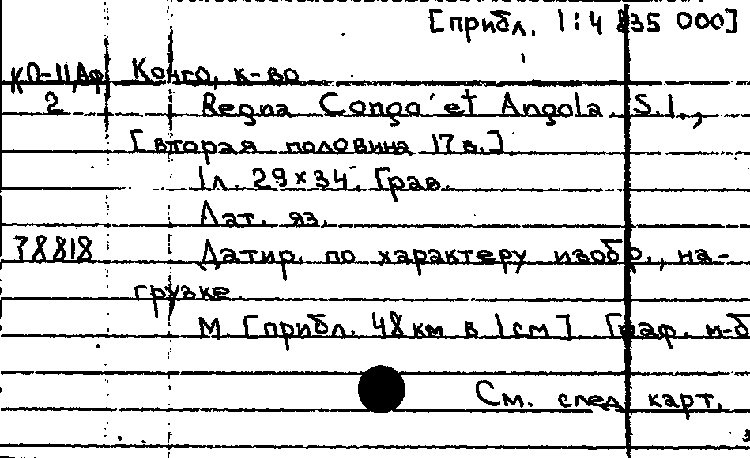 [прибл. 1:4 835 000]
КП-11/Аф Конго, к-во
2 Regna Congo et Angola. S.l.,
[вторая половина 17 в.]
1л. 29×34. Грав.
Лат. яз.
78818 Датир. по характеру изобр., на-
грузке.
М [прибл. 48 км в 1 см] Граф. м-б
См. след. карт.